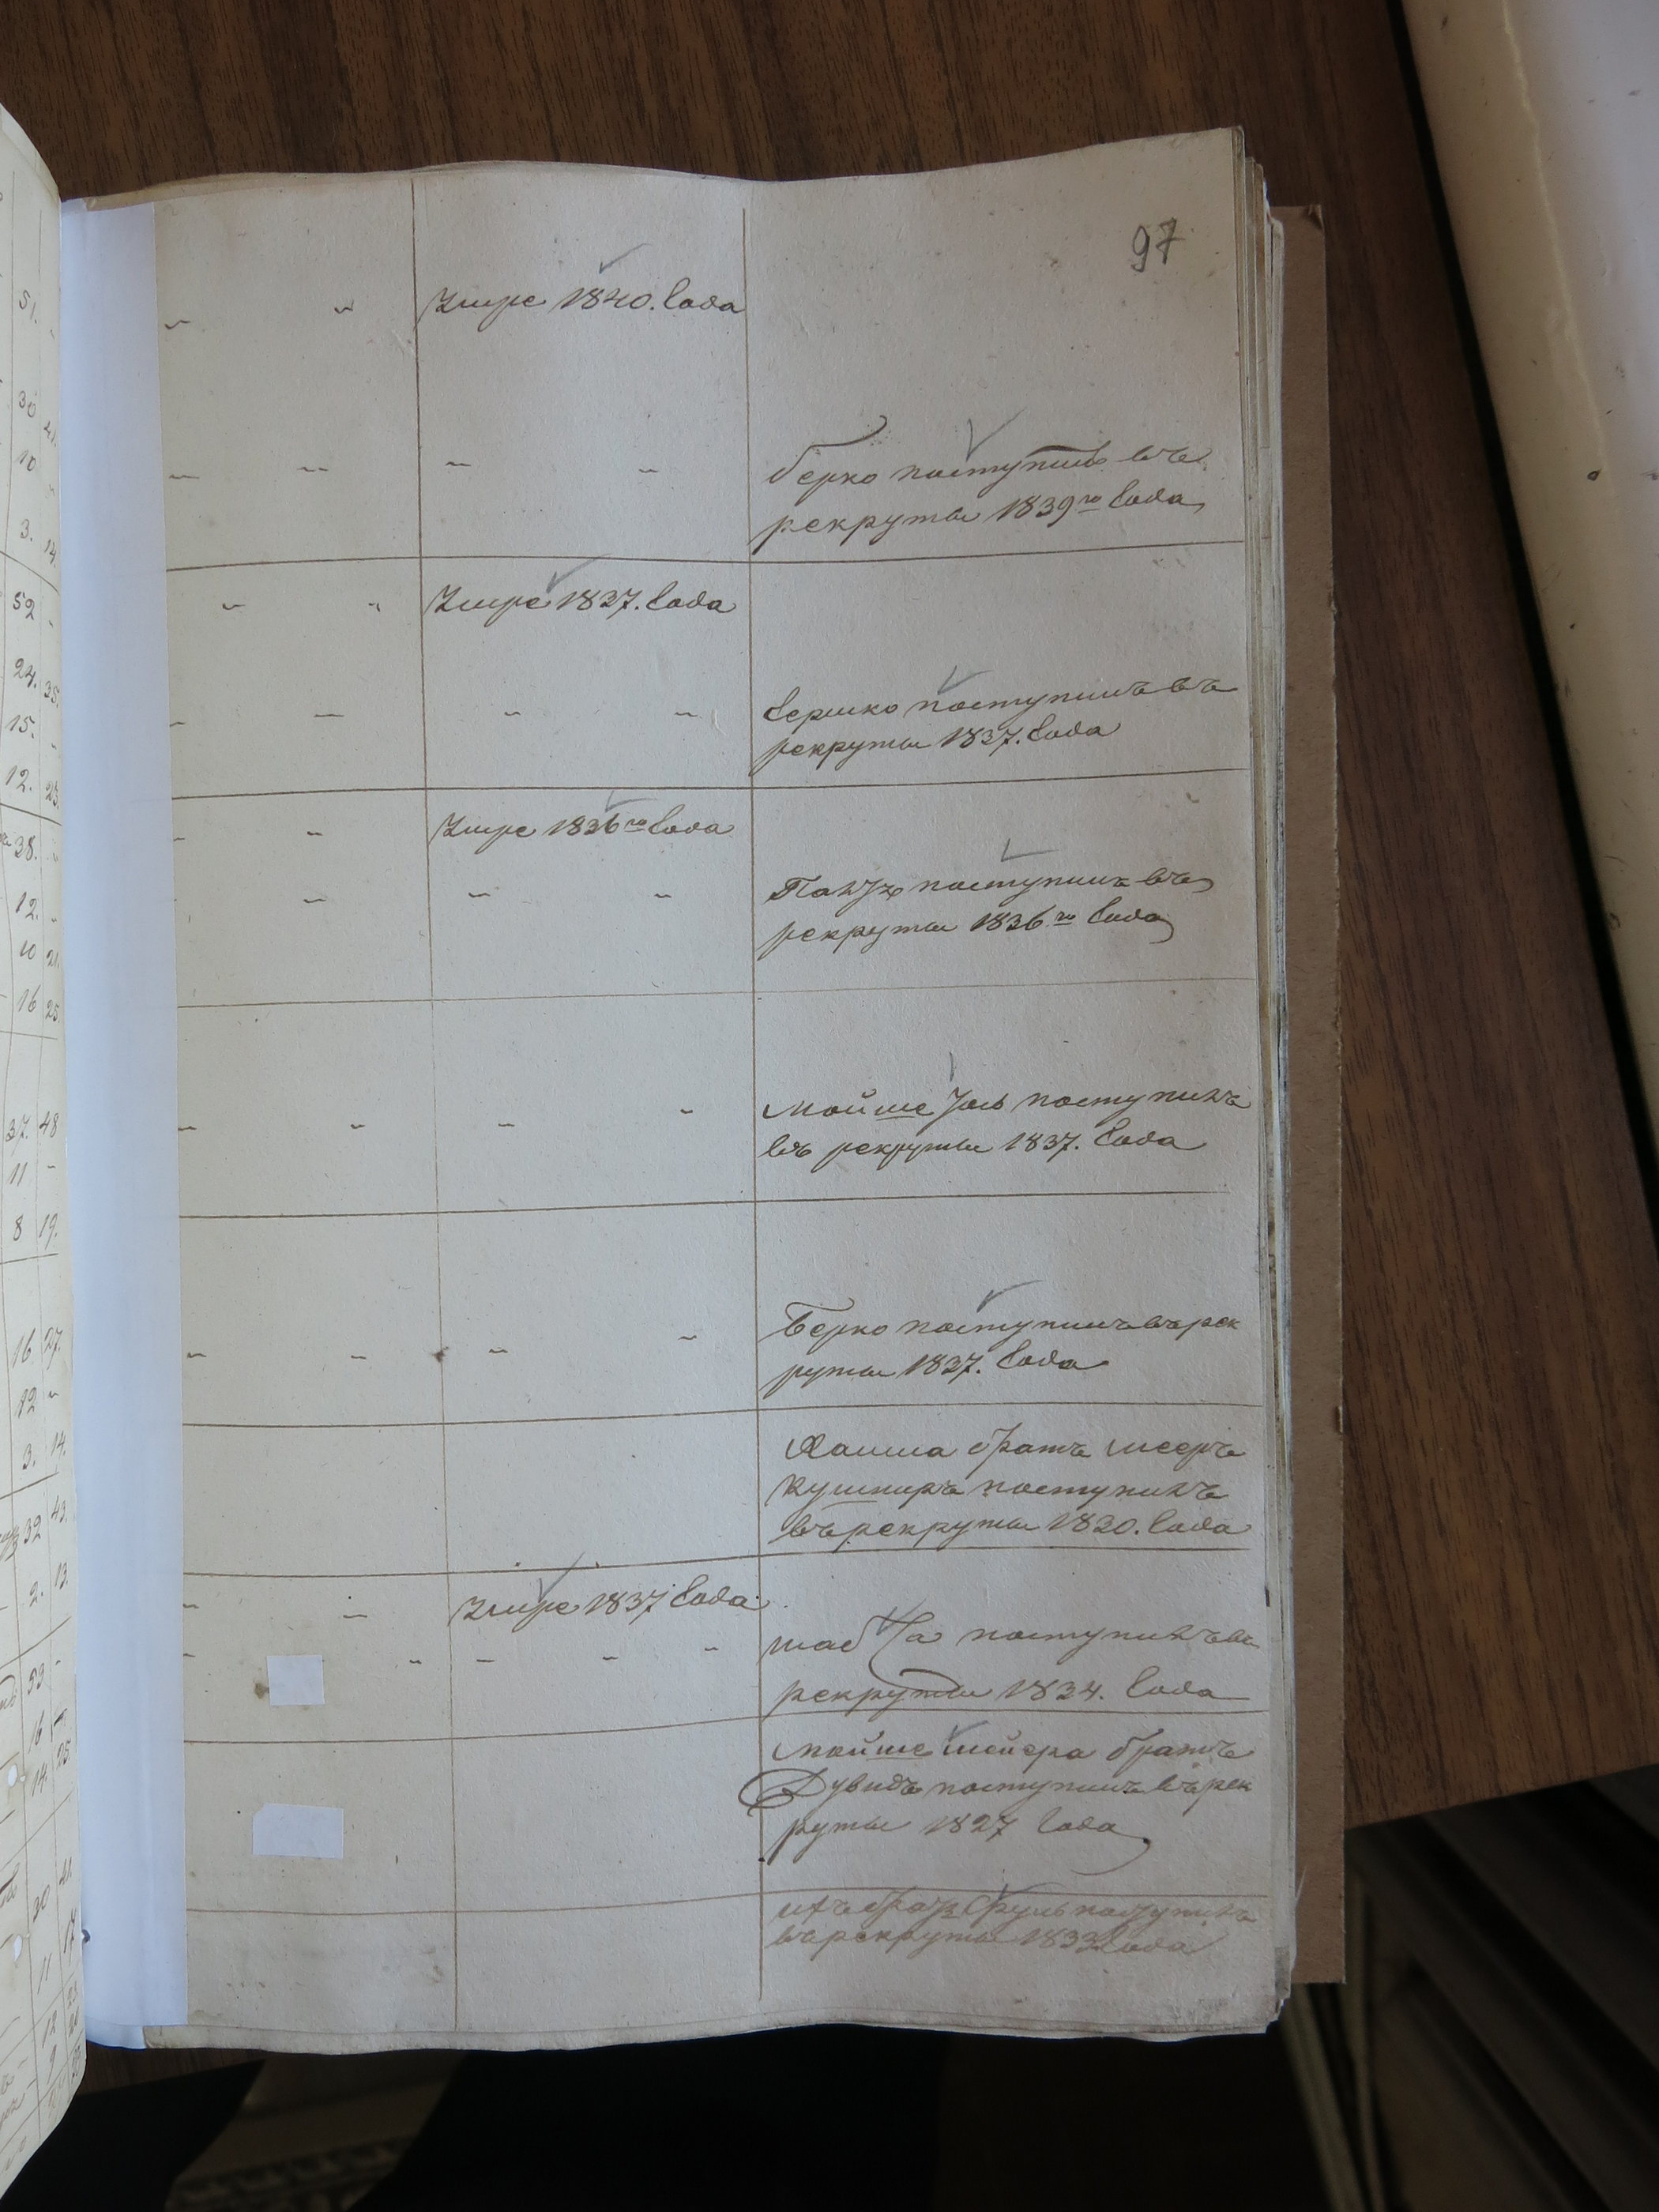 97
Умре 1840. Года
Берко поступилъ въ
рекруты 1839го Года
Умре 1837. Года
Гершко поступилъ въ
рекруты 1837. Года
Умре 1836го Года
поступилъ въ
рекруты 1836го Года
Мойше Іось поступилъ
въ рекруты 1837. Года
Берко поступилъ въ рек
руты 1837. Года
братъ Мееръ
Кушниръ поступилъ
въ рекруты 1830. Года
Умре 1837 Года
поступилъ въ
рекруты 1834. Года
Мойше Мейера братъ
Дувидъ поступилъ въ рек
руты 1827 Года
ихъ братъ Сруль поступилъ
въ рекруты 1833 Года
51.
30
10
3. 14.
52
24. 35.
15.
12. 23.
38.
12.
10 21.
16 25
37. 48
11
8 19.
16 27.
12
3. 14.
32 43.
2. 13.
53
16
14. 25
20
11